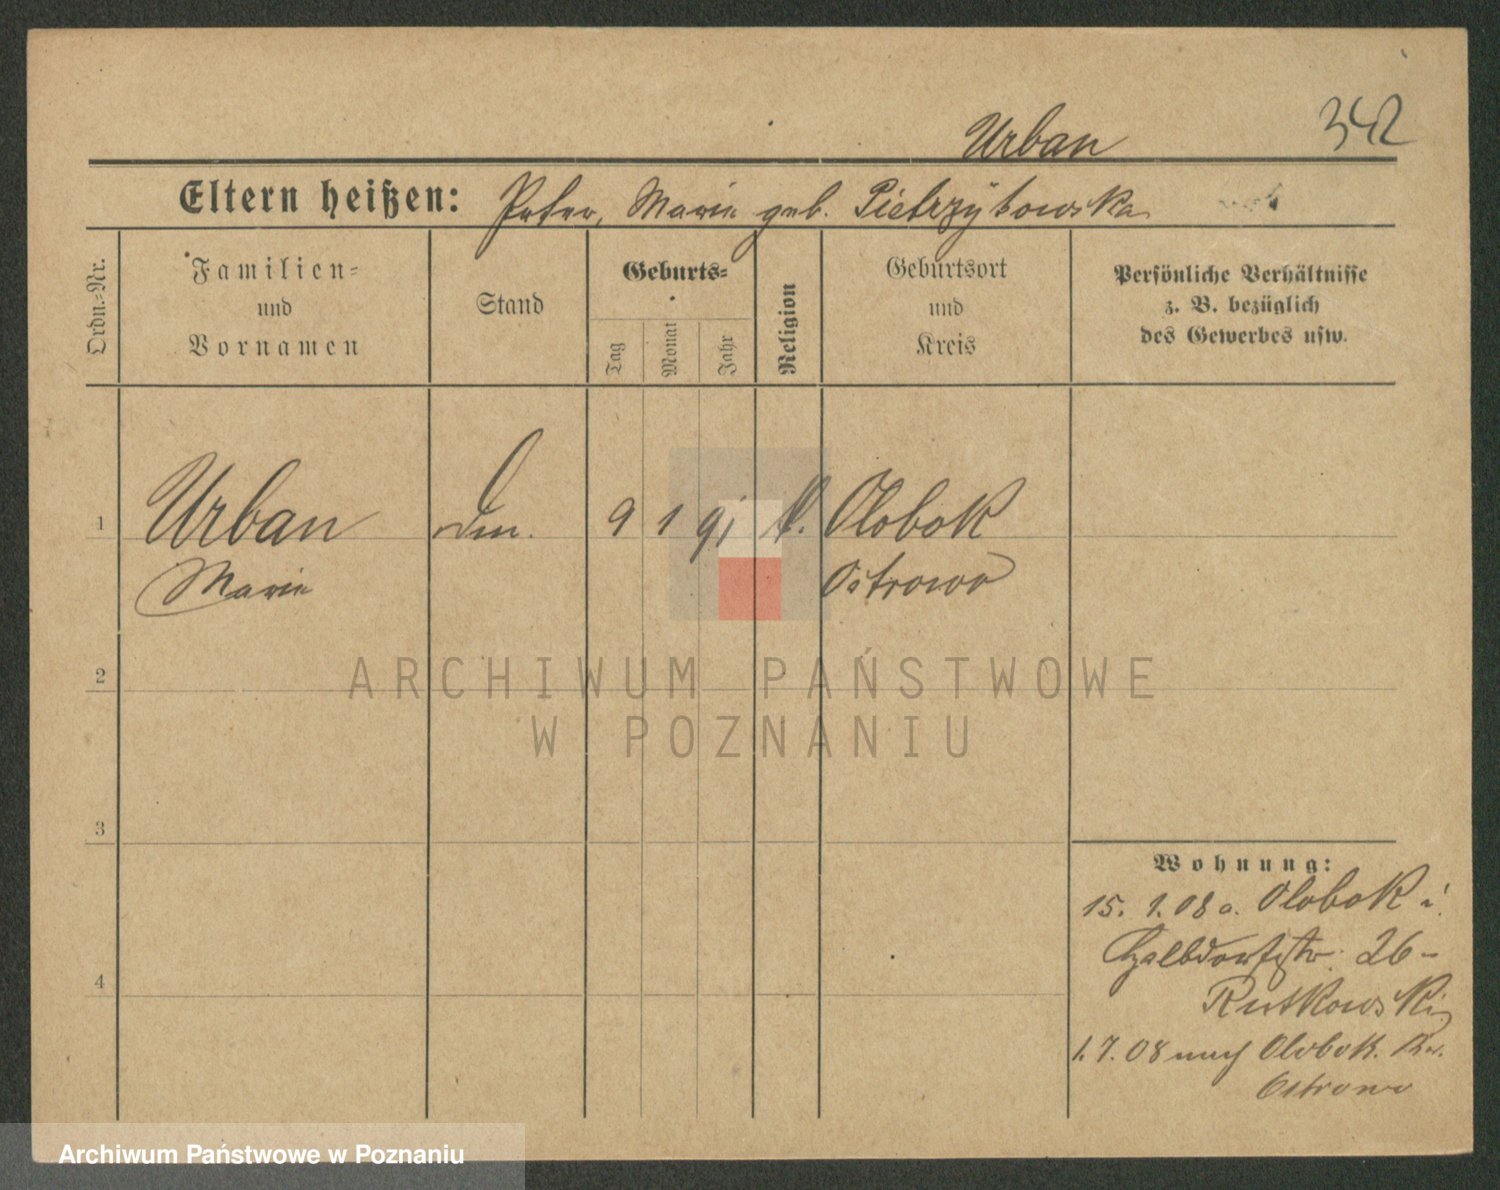 Urban 342
Eltern heißen: Peter, Marie geb. Pietrzykowska
Ordn.-Nr.
Familien-
und
Vornamen
Stand
Geburts-
Tag
Monat
Jahr
Religion
Geburtsort
und
Kreis
Persönliche Verhältnisse
z. B. bezüglich
des Gewerbes usw.
1 Urban 9 1 91 k. Olobok
Marie Ostrowo
2
3
4
Wohnung:
15. 1. 08 a. Olobok i.
26 -
Rutkowski
1. 7. 08 nach Olobok. Kr.
Ostrowo
ARCHIWUM PAŃSTWOWE
W POZNANIU
Archiwum Państwowe w Poznaniu